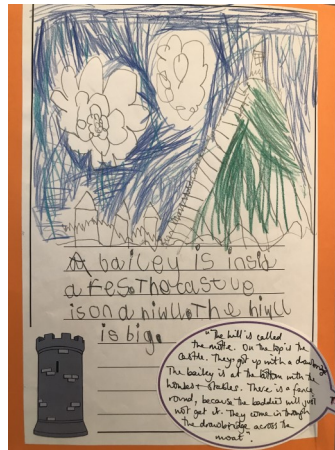 A bailey is insid
a fes. The castue
is on a hiwll. The hiwll
is big.
"The hill is called
the motte. On the top is the
castle. They got up with a drawbridge
The bailey is at the bottom with the
houses + stables. There is a fence
round, because the baddies will just
not get it. They come in through
the drawbridge across the
moat".